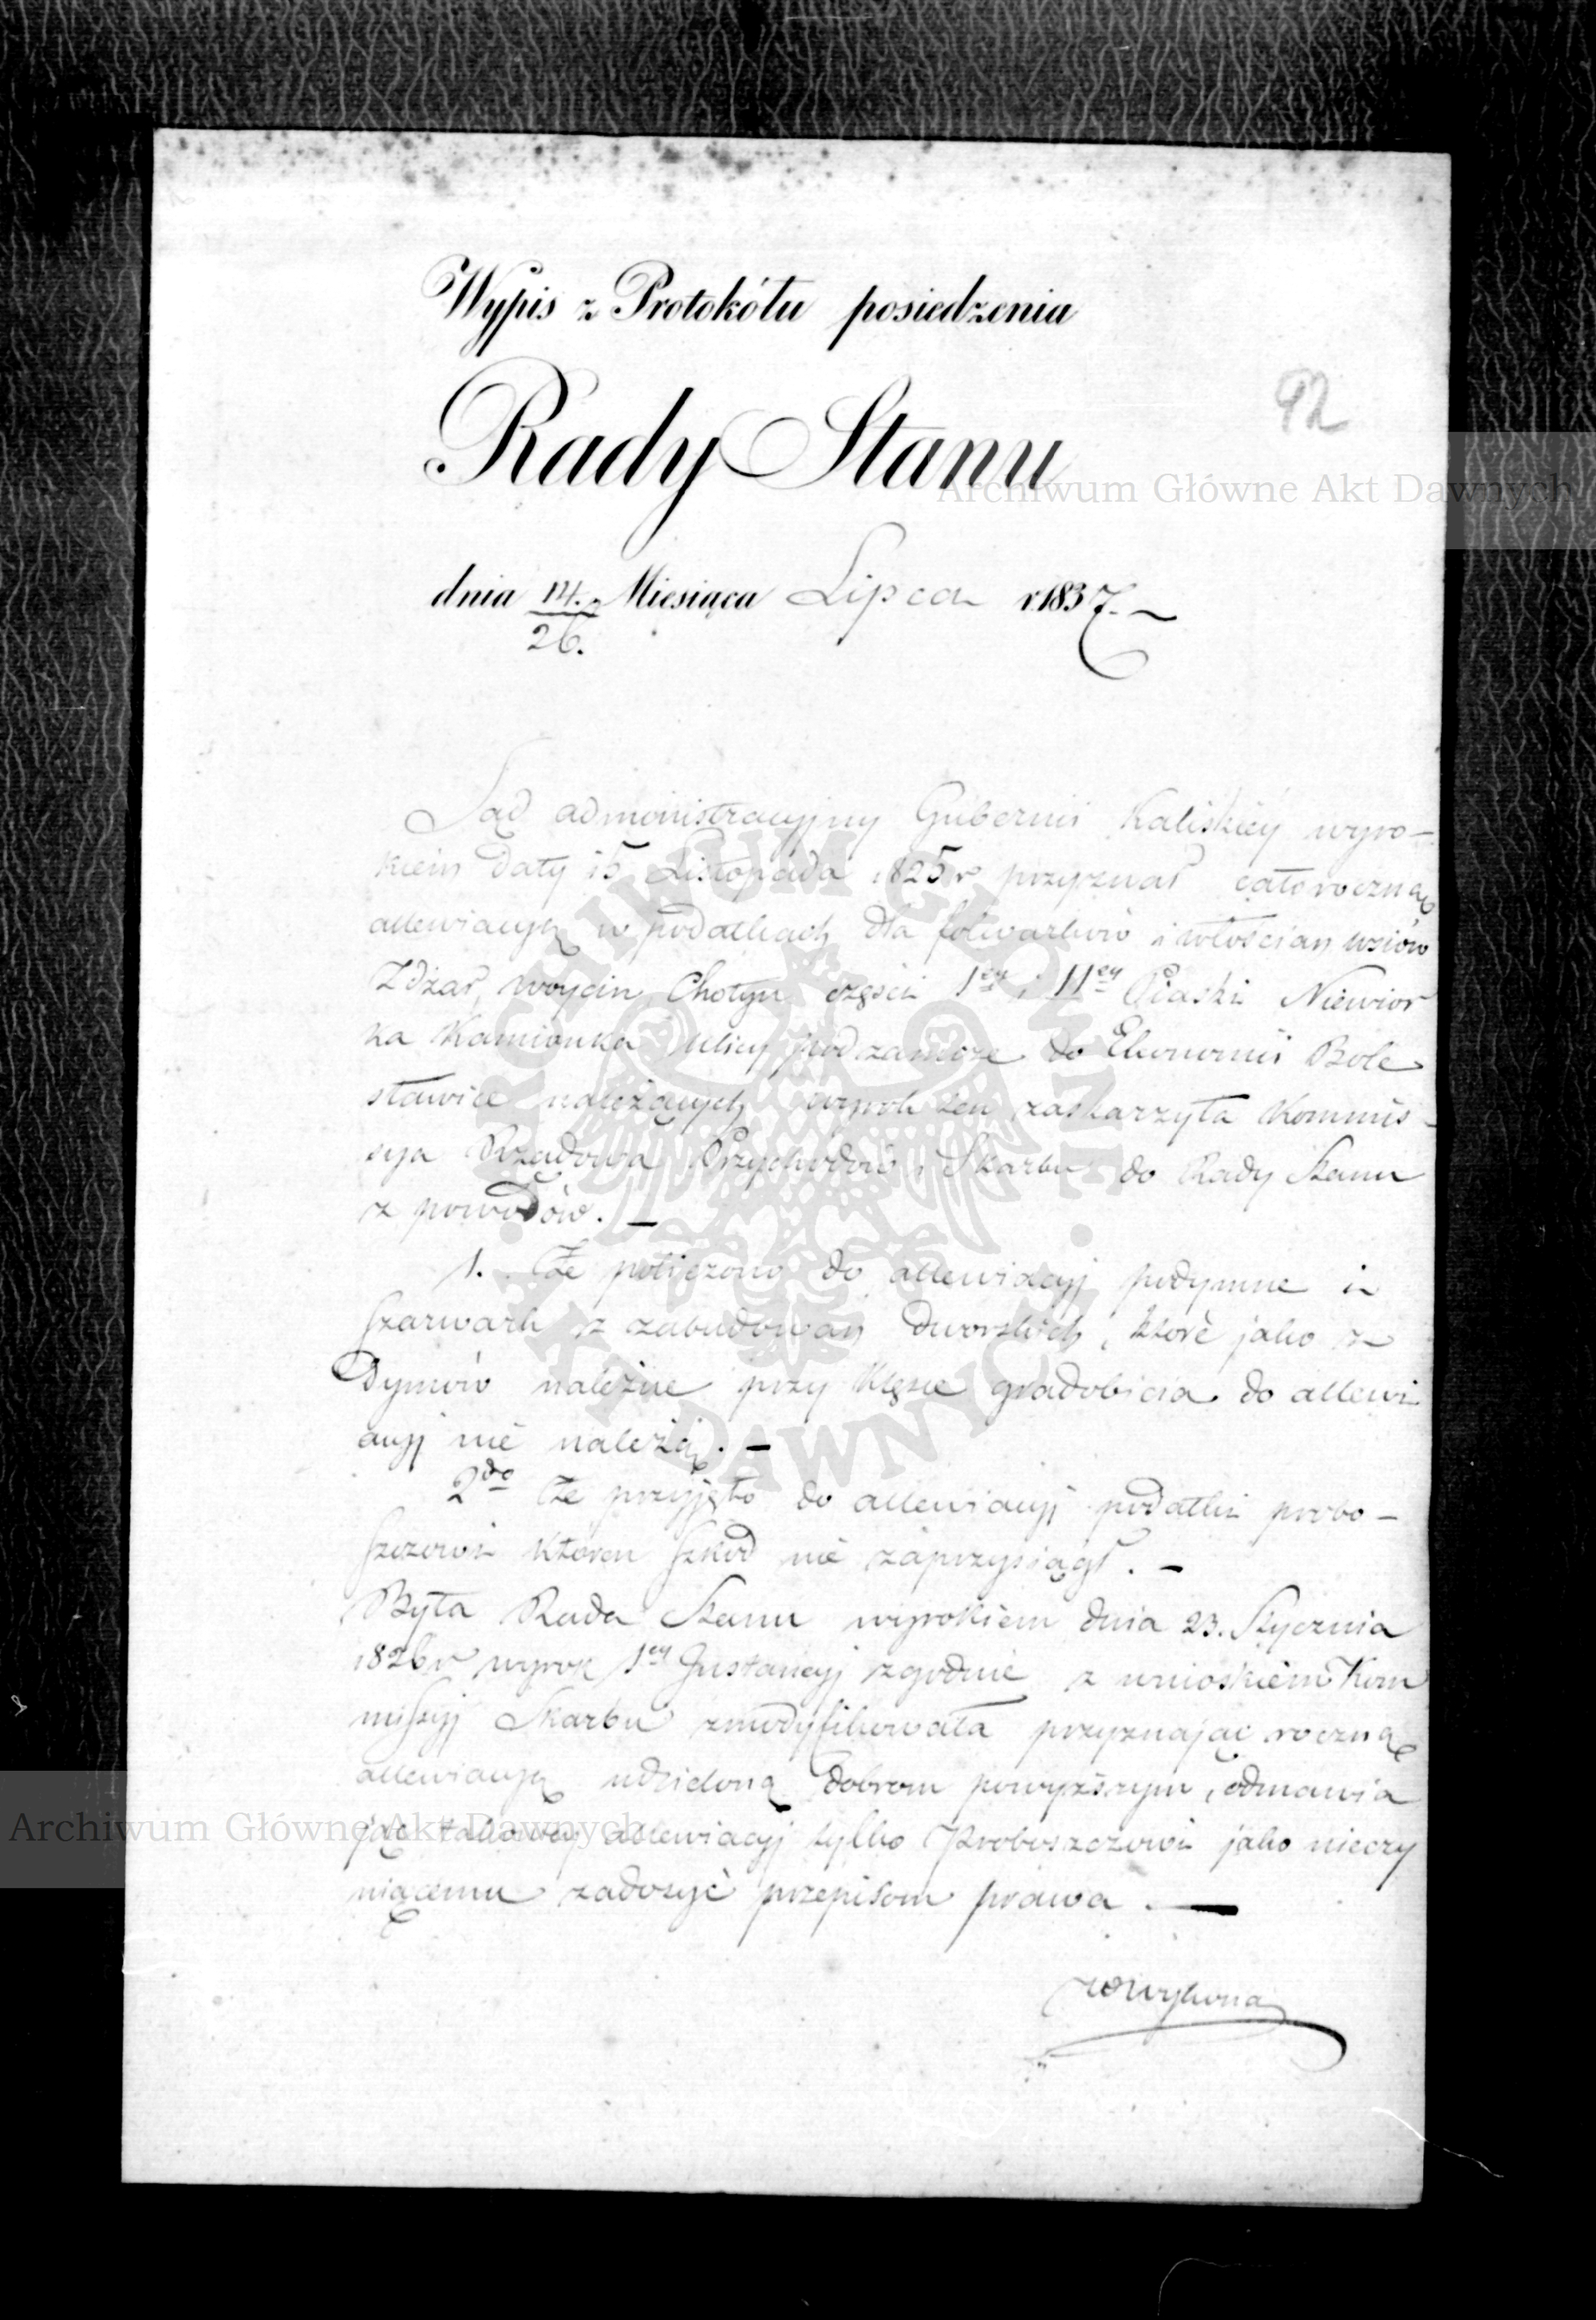 Wypis z Protokółu posiedzenia
92
Rady Stanu
dnia 14./26. Miesiąca Lipca r. 1837.
Sąd administracyjny Gubernii Kaliskiéy wyro-
kiem daty 15 Listopada 1825 r przyznał całoroczną
allewiacyą w podatkach dla folwarków i włościan wsiów
Zdżar, Woycin Chotyn części 1ey i IIey Piaski Niewior
ka Kamionka Ulicy podzamcze do Ekonomii Bole
sławice należących wyrok ten zaskarzyła Kommis-
sya Rządowa Przychodów i Skarbu do Rady Stanu
z powodów. —
1. Że policzono do allewiacyj podymne i
szarwark z zabudowań dworskich, które jako z
Dymów należne przy klęsce gradobicia do allewi
acyj nie należą. —
2do Że przyjęto do allewiacyj podatki probo-
szczowi któren szkod nie zaprzysiągł. —
Była Rada Stanu wyrokiem dnia 23. Stycznia
1826 r wyrok 1ey Instancyj zgodnie z wnioskiem Kom
missyj Skarbu zmodyfikowała przyznając roczną
allewiacyą udzieloną dobrom powyższym, odmawia
jąc takowey allewiacyj tylko Proboszczowi jako nieczy
niącemu zadosyć przepisom prawa. —
Archiwum Główne Akt Dawnych
Archiwum Główne Akt Dawnych
ARCHIWUM GŁÓWNE AKT DAWNYCH